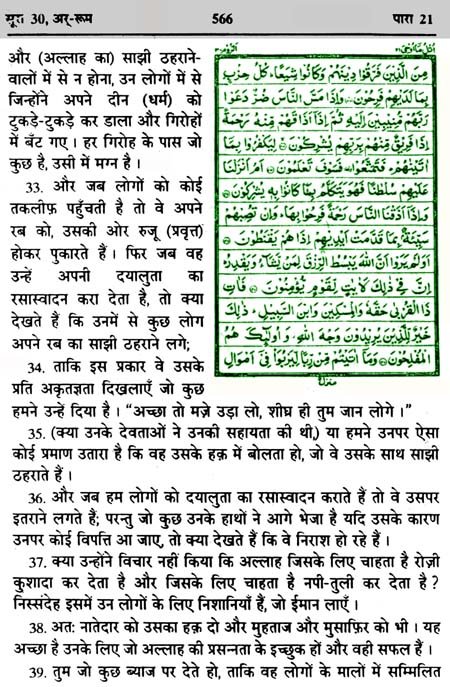 सूरा 30, अर्-रूम 566 पारा 21
और (अल्लाह का) साझी ठहराने-
वालों में से न होना, उन लोगों में से
जिन्होंने अपने दीन (धर्म) को
टुकड़े-टुकड़े कर डाला और गिरोहों
में बँट गए। हर गिरोह के पास जो
कुछ है, उसी में मग्न है।
33. और जब लोगों को कोई
तकलीफ़ पहुँचती है तो वे अपने
रब को, उसकी ओर रुजू (प्रवृत्त)
होकर पुकारते हैं। फिर जब वह
उन्हें अपनी दयालुता का
रसास्वादन करा देता है, तो क्या
देखते हैं कि उनमें से कुछ लोग
अपने रब का साझी ठहराने लगे;
34. ताकि इस प्रकार वे उसके
प्रति अकृतज्ञता दिखलाएँ जो कुछ
مِنَ الَّذِيْنَ فَرَّقُوْا دِيْنَهُمْ وَكَانُوْا شِيَعًا ۭ كُلُّ حِزْبٍۢ
بِمَا لَدَيْهِمْ فَرِحُوْنَ ۝ وَاِذَا مَسَّ النَّاسَ ضُرٌّ دَعَوْا
رَبَّهُمْ مُّنِيْبِيْنَ اِلَيْهِ ثُمَّ اِذَآ اَذَاقَهُمْ مِّنْهُ رَحْمَةً
اِذَا فَرِيْقٌ مِّنْهُمْ بِرَبِّهِمْ يُشْرِكُوْنَ ۝ لِيَكْفُرُوْا بِمَآ
اٰتَيْنٰهُمْ ۭ فَتَمَتَّعُوْا ۪ فَسَوْفَ تَعْلَمُوْنَ ۝ اَمْ اَنْزَلْنَا
عَلَيْهِمْ سُلْطٰنًا فَهُوَ يَتَكَلَّمُ بِمَا كَانُوْا بِهٖ يُشْرِكُوْنَ ۝
وَاِذَآ اَذَقْنَا النَّاسَ رَحْمَةً فَرِحُوْا بِهَا ۭ وَاِنْ تُصِبْهُمْ
سَيِّئَةٌۢ بِمَا قَدَّمَتْ اَيْدِيْهِمْ اِذَا هُمْ يَقْنَطُوْنَ ۝
اَوَلَمْ يَرَوْا اَنَّ اللّٰهَ يَبْسُطُ الرِّزْقَ لِمَنْ يَّشَآءُ وَيَقْدِرُ ۭ
اِنَّ فِيْ ذٰلِكَ لَاٰيٰتٍ لِّقَوْمٍ يُّؤْمِنُوْنَ ۝ فَاٰتِ
ذَا الْقُرْبٰى حَقَّهٗ وَالْمِسْكِيْنَ وَابْنَ السَّبِيْلِ ۭ ذٰلِكَ
خَيْرٌ لِّلَّذِيْنَ يُرِيْدُوْنَ وَجْهَ اللّٰهِ ۡ وَاُولٰٓئِكَ هُمُ
الْمُفْلِحُوْنَ ۝ وَمَآ اٰتَيْتُمْ مِّنْ رِّبًا لِّيَرْبُوَا۟ فِيْٓ اَمْوَالِ
हमने उन्हें दिया है। “अच्छा तो मज़े उड़ा लो, शीघ्र ही तुम जान लोगे।”
35. (क्या उनके देवताओं ने उनकी सहायता की थी,) या हमने उनपर ऐसा
कोई प्रमाण उतारा है कि वह उसके हक़ में बोलता हो, जो वे उसके साथ साझी
ठहराते हैं।
36. और जब हम लोगों को दयालुता का रसास्वादन कराते हैं तो वे उसपर
इतराने लगते हैं; परन्तु जो कुछ उनके हाथों ने आगे भेजा है यदि उसके कारण
उनपर कोई विपत्ति आ जाए, तो क्या देखते हैं कि वे निराश हो रहे हैं।
37. क्या उन्होंने विचार नहीं किया कि अल्लाह जिसके लिए चाहता है रोज़ी
कुशादा कर देता है और जिसके लिए चाहता है नपी-तुली कर देता है?
निस्संदेह इसमें उन लोगों के लिए निशानियाँ हैं, जो ईमान लाएँ।
38. अतः नातेदार को उसका हक़ दो और मुहताज और मुसाफ़िर को भी। यह
अच्छा है उनके लिए जो अल्लाह की प्रसन्नता के इच्छुक हों और वही सफल हैं।
39. तुम जो कुछ ब्याज पर देते हो, ताकि वह लोगों के मालों में सम्मिलित